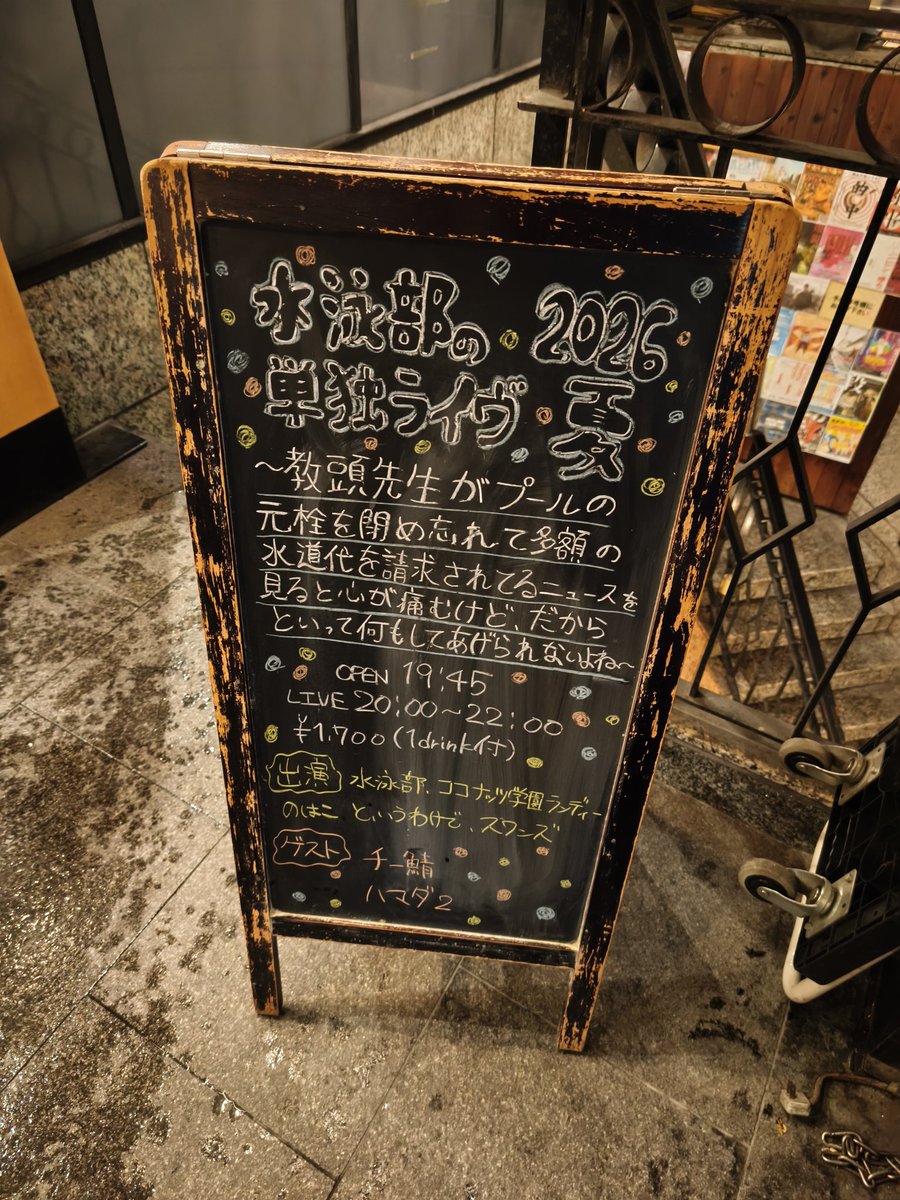 水泳部の
単独ライヴ
2026
夏
~教頭先生がプールの
元栓を閉め忘れて多額の
水道代を請求されてるニュースを
見ると心が痛むけど、だから
といって何もしてあげられないよね~
OPEN 19:45
LIVE 20:00~22:00
¥1,700(1drink付)
出演 水泳部、ココナッツ学園ランディー
のはこ というわけで、スワンズ
ゲスト チー鯖
ハマダ2
的中